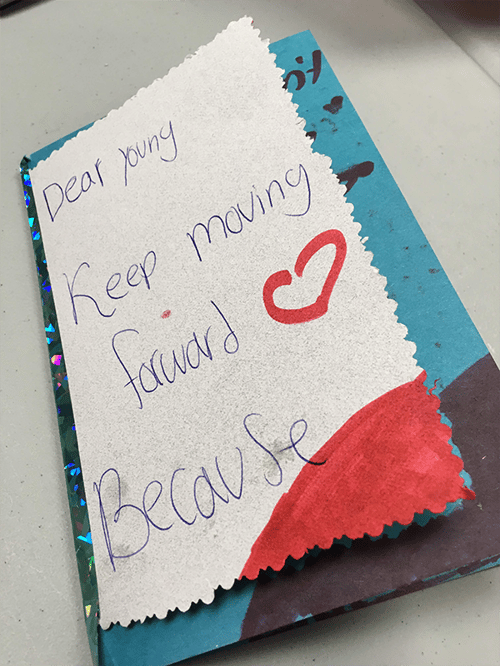 Dear young
Keep moving
forward
Because